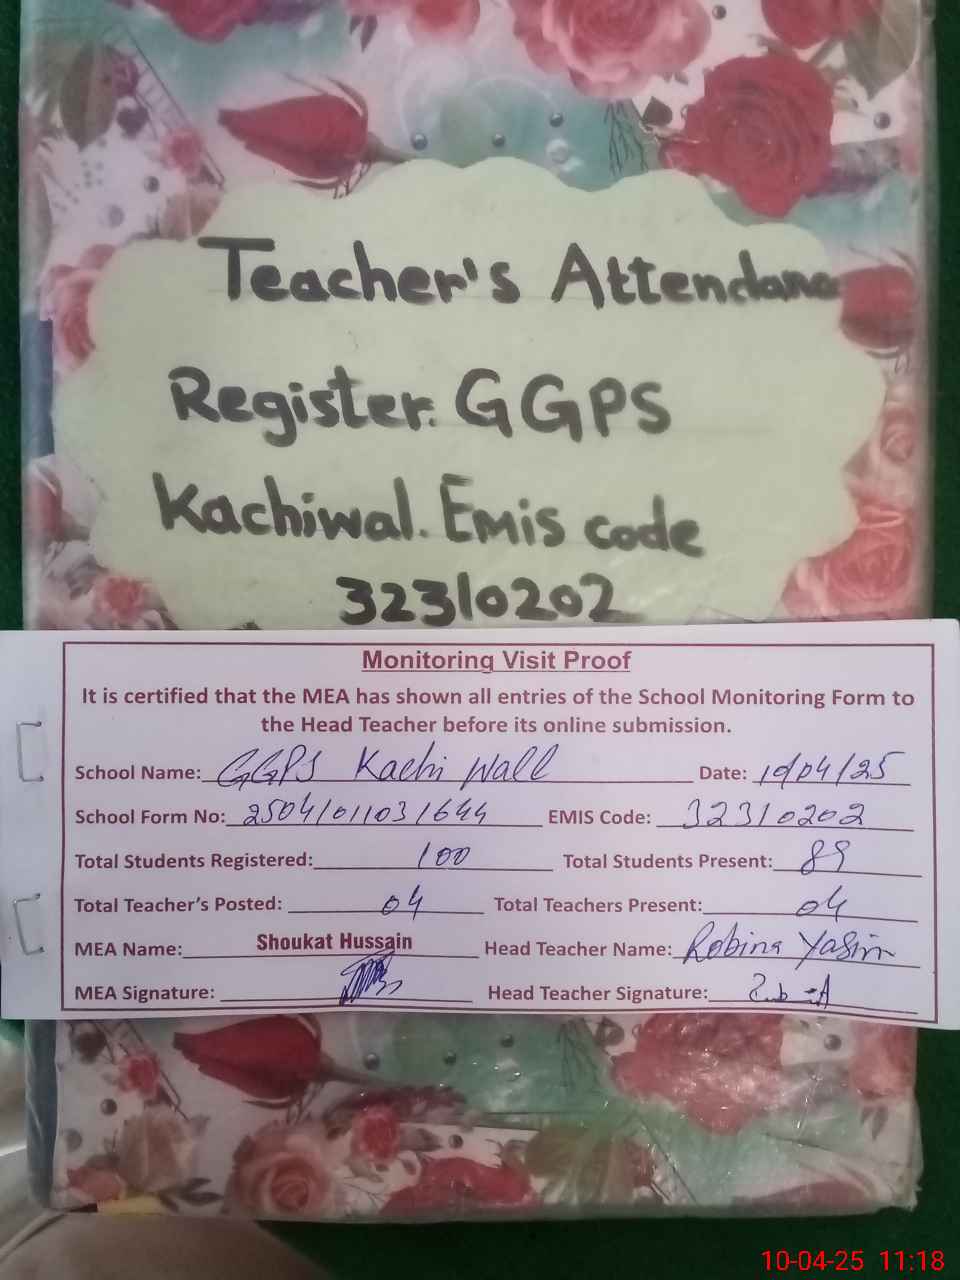 Teacher's Attendance
Register. GGPS
Kachiwal. Emis code
32310202
Monitoring Visit Proof
It is certified that the MEA has shown all entries of the School Monitoring Form to
the Head Teacher before its online submission.
School Name: GGPS Kachi Wall Date: 10/04/25
School Form No: 2504/011031644 EMIS Code: 32310202
Total Students Registered: 100 Total Students Present: 89
Total Teacher's Posted: 04 Total Teachers Present: 04
MEA Name: Shoukat Hussain Head Teacher Name: Robina Yasim
MEA Signature: Head Teacher Signature:
10-04-25 11:18